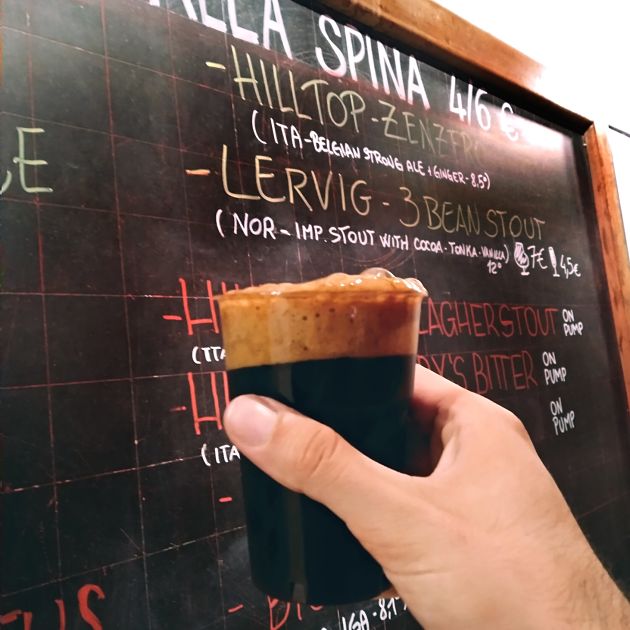 ALLA SPINA 4/6 €
- HILLTOP - ZENZERO
(ITA - BELGIAN STRONG ALE + GINGER - 8.5°)
- LERVIG - 3 BEAN STOUT
(NOR - IMP. STOUT WITH COCOA - TONKA - VANILLA) 7€ 4,5€
12°
- H LAGHER STOUT ON PUMP
(ITA
- H Y'S BITTER ON PUMP
(ITA
ON PUMP
IGA - 8,1